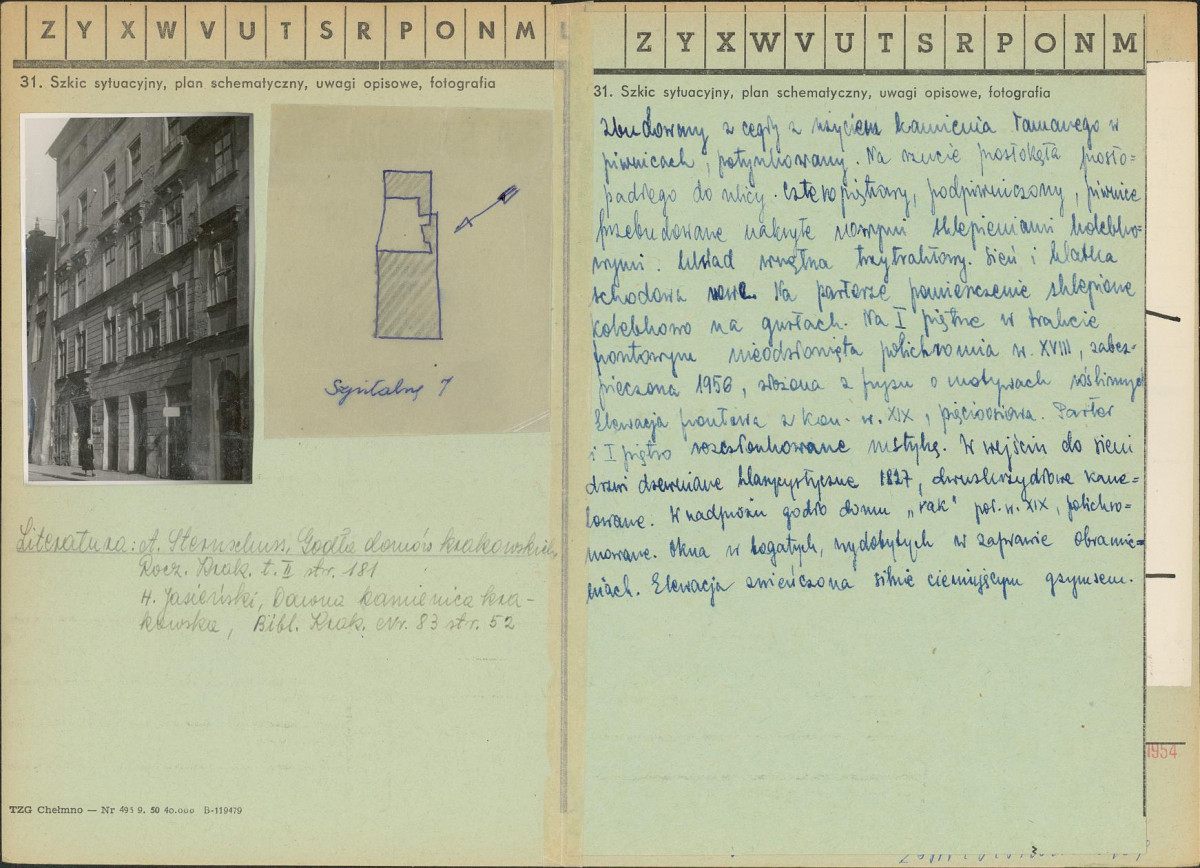 Z Y X W V U T S R P O N M
31. Szkic sytuacyjny, plan schematyczny, uwagi opisowe, fotografia
Szpitalna 7
Literatura: A. Sternschuss, Godła domów krakowskich,
Rocz. Krak. t. II str. 181
H. Jasieński, Dawna kamienica kra-
kowska, Bibl. Krak. Nr. 83 str. 52
TZG Chełmno — Nr 495 9. 50 40.000 B-119479
Z Y X W V U T S R P O N M
31. Szkic sytuacyjny, plan schematyczny, uwagi opisowe, fotografia
Zbudowany z cegły z użyciem kamienia łamanego w
piwnicach, potynkowany. Na rzucie prostokąta prosto=
padłego do ulicy. Czteropiętrowy, podpiwniczony, piwnice
przebudowane nakryte nowymi sklepieniami kolebko-
wymi. Układ wnętrza trzytraktowy. Sień i klatka
schodowa nowe. Na parterze pomieszczenie sklepione
kolebkowo na gurtach. Na I piętrze w trakcie
frontowym nieodsłonięta polichromia w. XVIII, zabez-
pieczona 1956, złożona z fryzu o motywach roślinnych
Elewacja frontowa z kon. w. XIX, pięcioosiowa. Parter
i I piętro rozczłonkowane rustyką. W wejściu do sieni
drzwi drewniane klasycystyczne 1827, dwuskrzydłowe kane=
lowane. W nadprożu godło domu „rak" poł. w. XIX, polichro-
mowane. Okna w bogatych, wydobytych w zaprawie obramie=
niach. Elewacja zwieńczona silnie cieniującym gzymsem.
1954